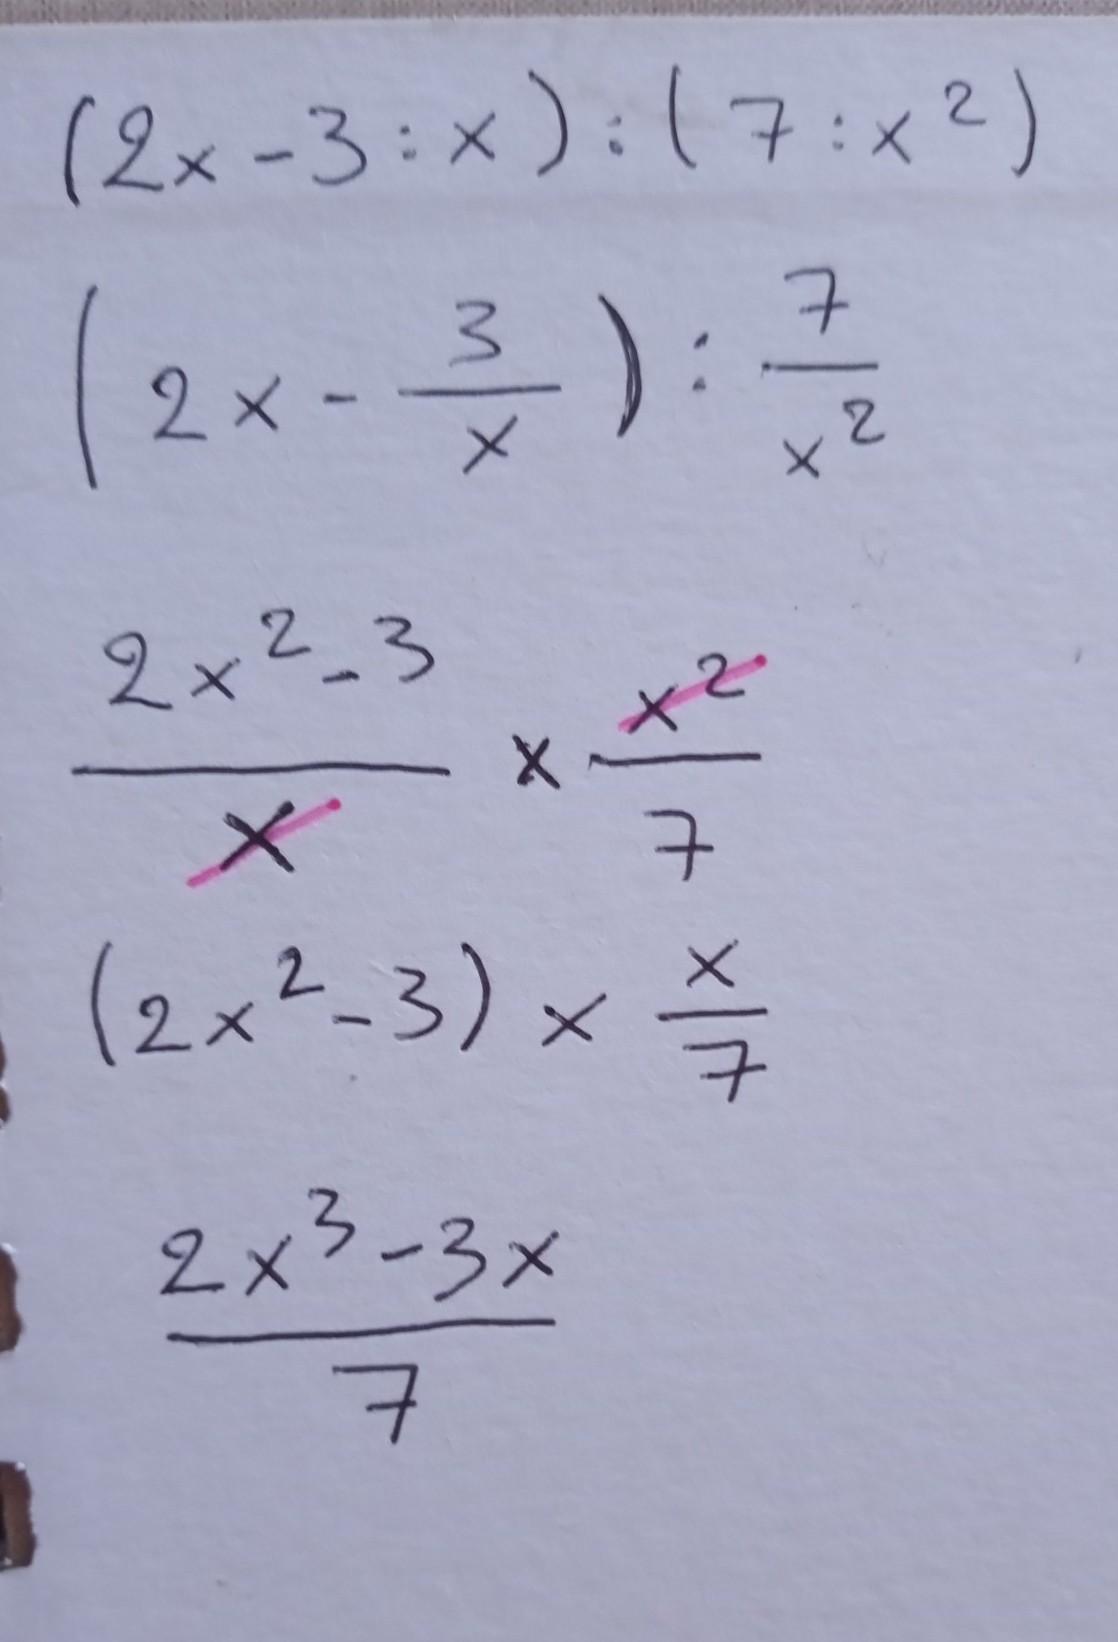 (2x-3:x):(7:x²)
(2x-3/x):7/x²
2x²-3/x × x²/7
(2x²-3)×x/7
2x³-3x/7